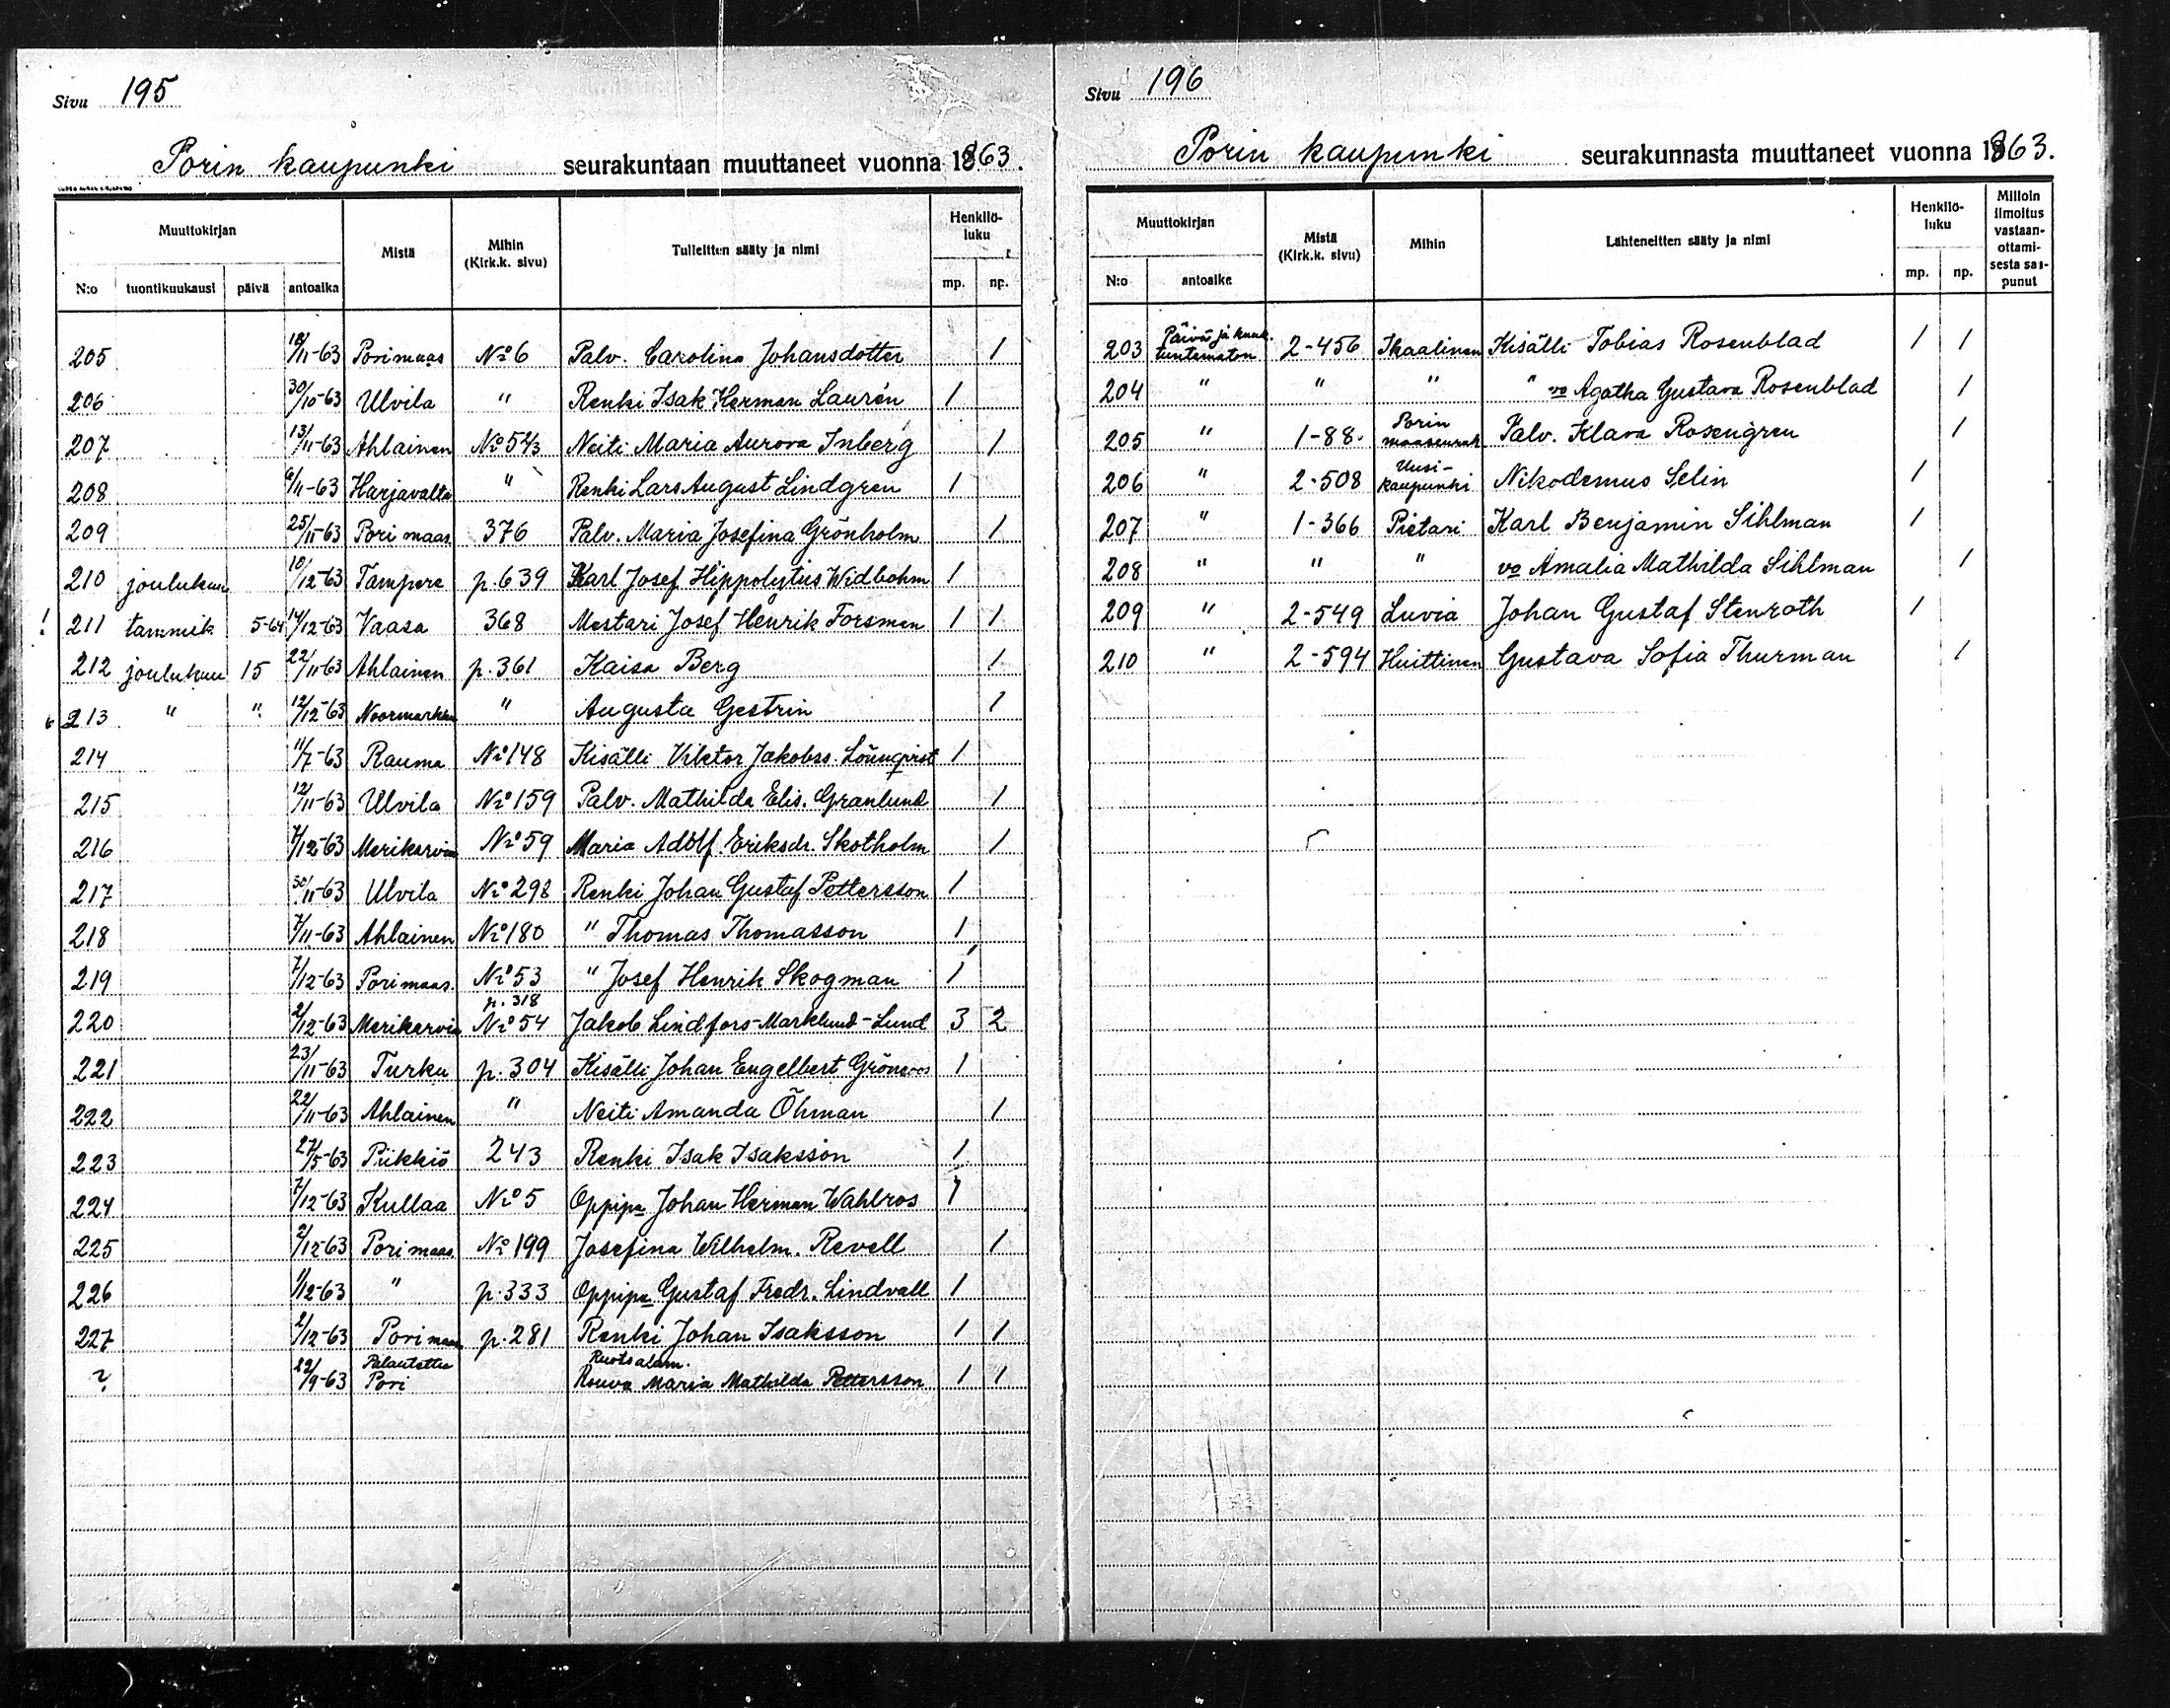 Sivu 195
Porin kaupunki seurakuntaan muuttaneet vuonna 1863.
Muuttokirjan Mistä Mihin (Kirk.k. sivu) Tulleitten sääty ja nimi Henkilö-luku
N:o tuontikuukausi päivä antoaika mp. np.
205 18/11-63 Porimaas No 6 Palv. Carolina Johansdotter 1
206 30/10-63 Ulvila " Renki Isak Herman Laurén 1
207 13/11-63 Ahlainen No 52/3 Neiti Maria Aurora Inberg 1
208 6/11-63 Harjavalta " Renki Lars August Lindgren 1
209 25/11-63 Pori maas 376 Palv. Maria Josefina Grönholm 1
210 joulukuu 10/12-63 Tampere p. 639 Karl Josef Hippolytus Widbohm 1
! 211 tammik. 5-64 14/12-63 Vaasa 368 Mestari Josef Henrik Forsman 1 1
212 joulukuu 15 22/11-63 Ahlainen p. 361 Kaisa Berg 1
213 " " 12/12-63 Noormarkku " Augusta Gestrin 1
214 11/7-63 Rauma No 148 Kisälli Viktor Jakobss. Lönnqvist 1
215 12/11-63 Ulvila No 159 Palv. Mathilda Elis. Granlund 1
216 7/12-63 Merikarvia No 59 Maria Adolf. Eriksdr. Skotholm 1
217 30/11-63 Ulvila No 298 Renki Johan Gustaf Pettersson 1
218 7/11-63 Ahlainen No 180 " Thomas Thomasson 1
219 7/12-63 Porimaas. No 53 " Josef Henrik Skogman 1
220 2/12-63 Merikarvia p. 318 No 54 Jakob Lindfors-Marklund-Lund 3 2
221 23/11-63 Turku p. 304 Kisälli Johan Engelbert Grönroos 1
222 22/11-63 Ahlainen " Neiti Amanda Öhman 1
223 27/5-63 Piikkiö 243 Renki Isak Isaksson 1
224 7/12-63 Kullaa No 5 Oppipa Johan Herman Wahlros 1
225 2/12-63 Porimaas. No 199 Josefina Wilhelm. Revell 1
226 1/12-63 " p. 333 Oppipa Gustaf Fredr. Lindvall 1
227 2/12-63 Pori maas p. 281 Renki Johan Isaksson 1 1
? 22/9-63 Palautettu Pori Ruotsalam. Rouva Maria Mathilda Pettersson 1 1
Sivu 196
Porin kaupunki seurakunnasta muuttaneet vuonna 1863.
Muuttokirjan Mistä (Kirk.k. sivu) Mihin Lähteneitten sääty ja nimi Henkilö-luku Milloin ilmoitus vastaan-ottami-sesta saa-punut
N:o antoaika mp. np.
203 Päivä ja kuuk. tuntematon 2-456 Ikaalinen Kisälli Tobias Rosenblad 1 1
204 " " " " vo Agatha Gustava Rosenblad 1
205 " 1-88. Porin maaseurak Palv. Klara Rosengren 1
206 " 2-508 Uusi-kaupunki Nikodemus Selin 1
207 " 1-366 Pietari Karl Benjamin Sihlman 1
208 " " " vo Amalia Mathilda Sihlman 1
209 " 2-549 Luvia Johan Gustaf Stenroth 1
210 " 2-594 Huittinen Gustava Sofia Thurman 1